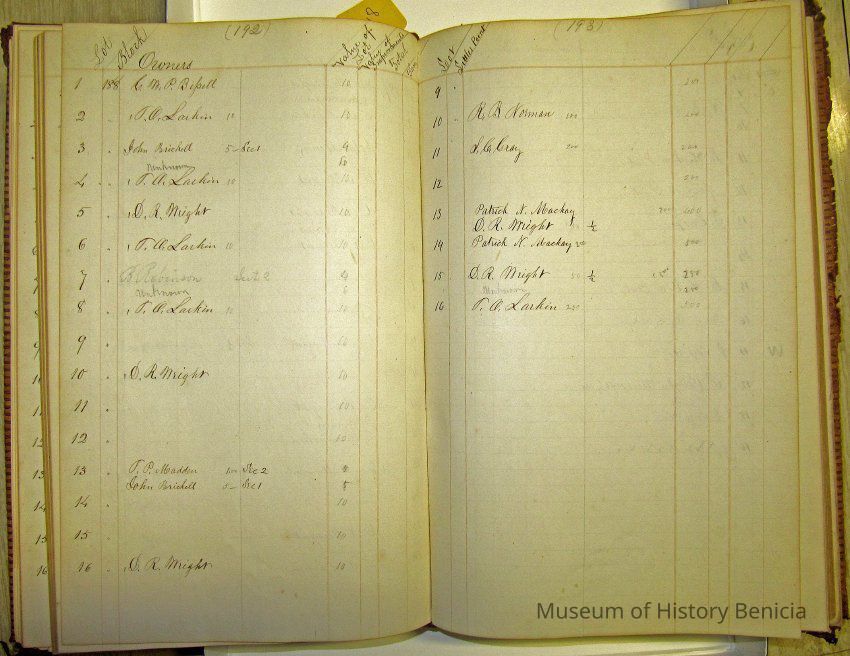 (192)
Lot Block Owners Value of Lot Value of Improvements Total
1 188 C. W. P. Bissell 10
2 " T. O. Larkin 10 10
3 " John Brickell 5 - Sec 1
Unknown
4 " T. O. Larkin 10 10
5 " D. R. Wright 10
6 " T. O. Larkin 10 10
7 " B. Robinson Sec 2
Unknown
8 " T. O. Larkin 10 10
9 10
10 " D. R. Wright 10
11 10
12 10
13 T. P. Madden Sec 2
John Brickell 5 - Sec 1 5
14 10
15 10
16 " D. R. Wright 10
(193)
Lot
9 200
10 R. B. Norman 200
11 200 200
12 200
13 Patrick N. Mackay 200 400
D. R. Wright 1/2
14 Patrick N. Mackay
15 D. R. Wright 50 1/2
Unknown
16 T. O. Larkin 200 200
Museum of History Benicia